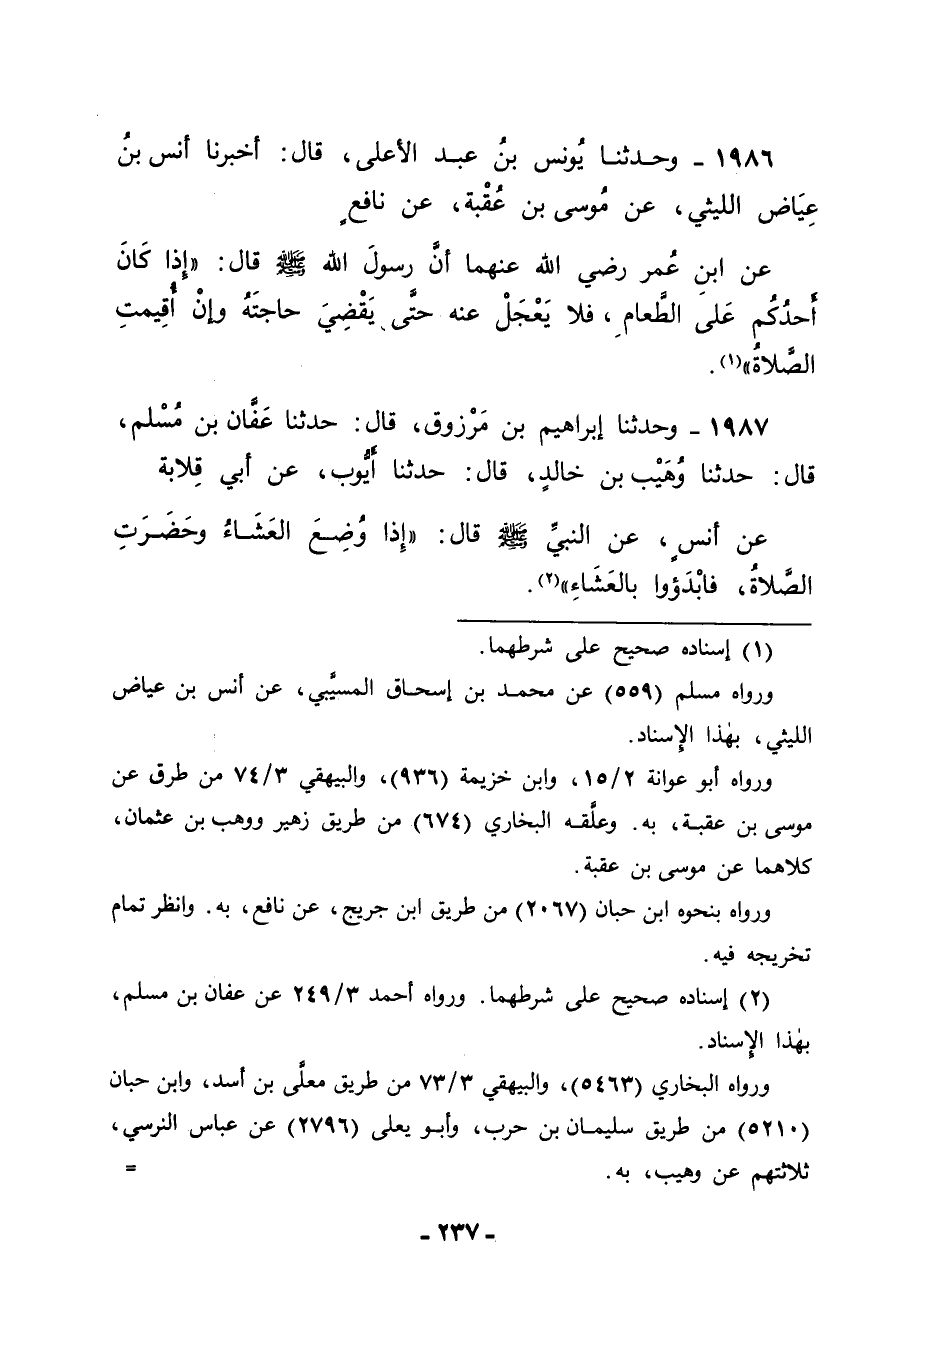 ١٩٨٦ ـ وحـدثنـا يُونس بنُ عبـد الأعلى، قال: أخبرنا أنس بنُ
عِيَاض الليثي، عن مُوسى بن عُقْبة، عن نافعٍ
عن ابنِ عُمر رضي الله عنهما أنَّ رسولَ الله ﷺ قال: «إِذا كَانَ
أَحدُكُم عَلى الطَّعامِ، فلا يَعْجَلْ عنه حتَّى يَقْضِيَ حاجتَهُ وإنْ أُقِيمتِ
الصَّلاةُ»(١).
١٩٨٧ ـ وحدثنا إبراهيم بن مَرْزوق، قال: حدثنا عَفَّان بن مُسْلم،
قال: حدثنا وُهَيْب بن خالدٍ، قال: حدثنا أَيُّوب، عن أبي قِلابة
عن أنسٍ، عن النبيِّ ﷺ قال: «إِذا وُضِـعَ العَشَـاءُ وحَضَـرَتِ
الصَّلاةُ، فابْدَؤوا بالعَشَاءِ»(٢).
(١) إسناده صحيح على شرطهما.
ورواه مسلم (٥٥٩) عن محمـد بن إسحـاق المسيَّبي، عن أنس بن عياض
الليثي، بهٰذا الإِسناد.
ورواه أبو عوانة ١٥/٢، وابن خزيمة (٩٣٦)، والبيهقي ٧٤/٣ من طرق عن
موسى بن عقبـة، به. وعلَّقـه البخاري (٦٧٤) من طريق زهير ووهب بن عثمان،
كلاهما عن موسى بن عقبة.
ورواه بنحوه ابن حبان (٢٠٦٧) من طريق ابن جريج، عن نافع، به. وانظر تمام
تخريجه فيه.
(٢) إسناده صحيح على شرطهما. ورواه أحمد ٢٤٩/٣ عن عفان بن مسلم،
بهٰذا الإِسناد.
ورواه البخاري (٥٤٦٣)، والبيهقي ٧٣/٣ من طريق معلَّى بن أسد، وابن حبان
(٥٢١٠) من طريق سليمـان بن حرب، وأبـو يعلى (٢٧٩٦) عن عباس النرسي،
ثلاثتهم عن وهيب، به. =
ـ ٢٣٧ ـ